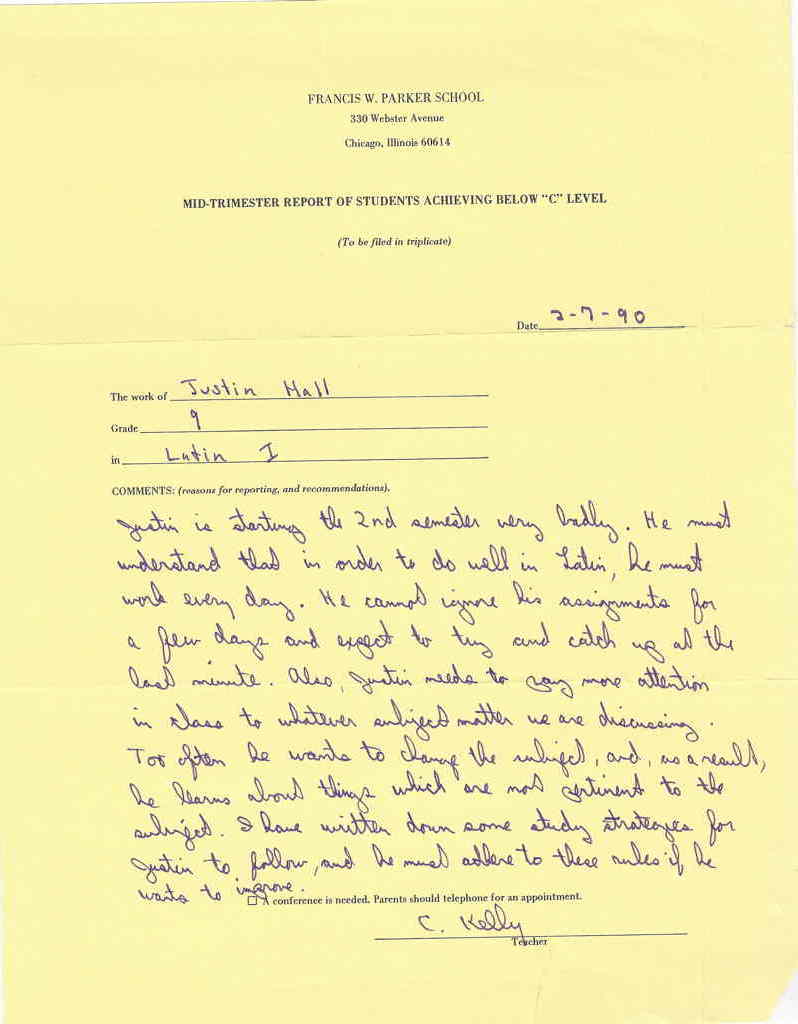 FRANCIS W. PARKER SCHOOL
330 Webster Avenue
Chicago, Illinois 60614
MID-TRIMESTER REPORT OF STUDENTS ACHIEVING BELOW "C" LEVEL
(To be filed in triplicate)
Date 2-7-90
The work of Justin Hall
Grade 9
in Latin I
COMMENTS: (reasons for reporting, and recommendations).
Justin is starting the 2nd semester very badly. He must
understand that in order to do well in Latin, he must
work every day. He cannot ignore his assignments for
a few days and expect to try and catch up at the
last minute. Also, Justin needs to pay more attention
in class to whatever subject matter we are discussing.
Too often he wants to change the subject, and, as a result,
he learns about things which are not pertinent to the
subject. I have written down some study strategies for
Justin to follow, and he must adhere to these rules if he
wants to improve.
☐ A conference is needed. Parents should telephone for an appointment.
C. Kelly
Teacher